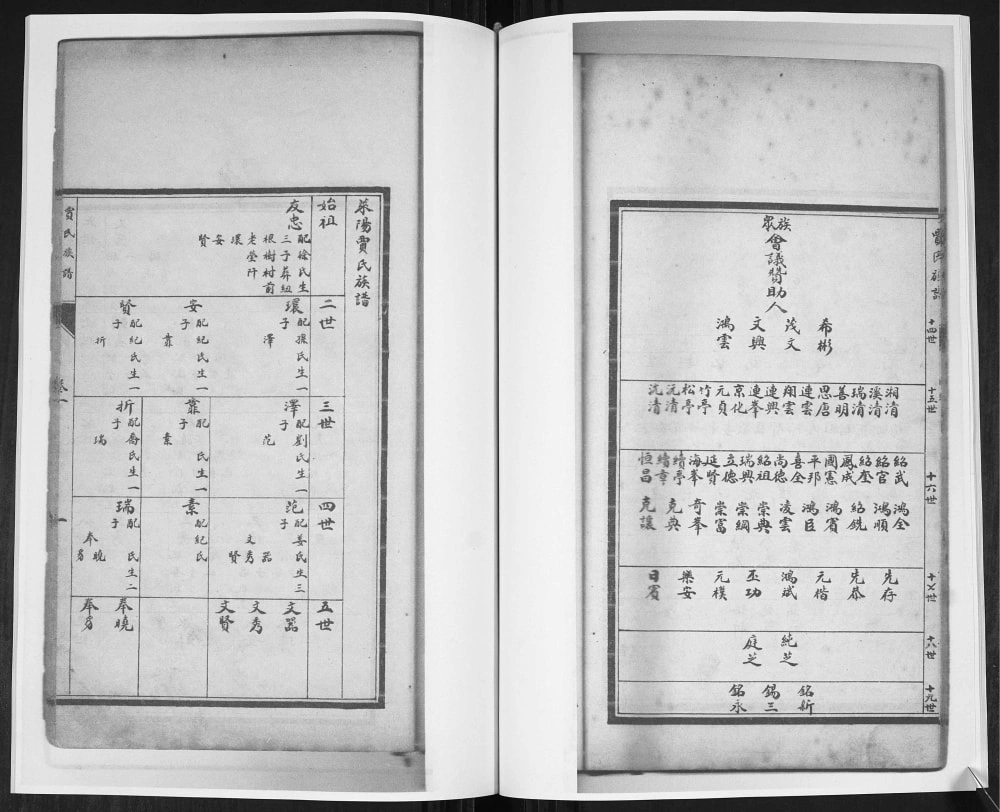 族
眾
會議贊助人
十四世
希彬
茂文
文興
鴻雲
十五世
湘清
溪清
瑞清
善明
思唐
連雲
翔雲
連興
連峯
京化
元貞
竹亭
松亭
沅清
沈清
十六世
紹武
紹官
紹奎
鳳成
國憲
平邦
喜全
尚德
紹祖
瑞興
立德
延賢
海峯
續亭
恒昌
鴻全
鴻順
紹銑
鴻賓
鴻臣
凌雲
崇典
崇綱
崇富
奇峯
克典
克讓
十七世
克存
克恭
元楷
鴻斌
丕功
元樸
樂安
日賓
十八世
純芝
庭芝
十九世
銘新
錫三
銘永
萊陽賈氏族譜
始祖
友忠
配徐氏生
三子葬祖
根樹村前
老塋阡
環
安
賢
二世
環
配孫氏生一
子
澤
安
配紀氏生一
子
靠
賢
配紀氏生一
子
折
三世
澤
配劉氏生一
子
范
靠
配 氏生一
子
素
折
配喬氏生一
子
瑞
四世
范
配姜氏生三
子
文
器
秀
賢
素
配紀氏
瑞
配 氏生二
子
奉
曉
五世
文器
文秀
文賢
奉曉
賈氏族譜
卷一
一